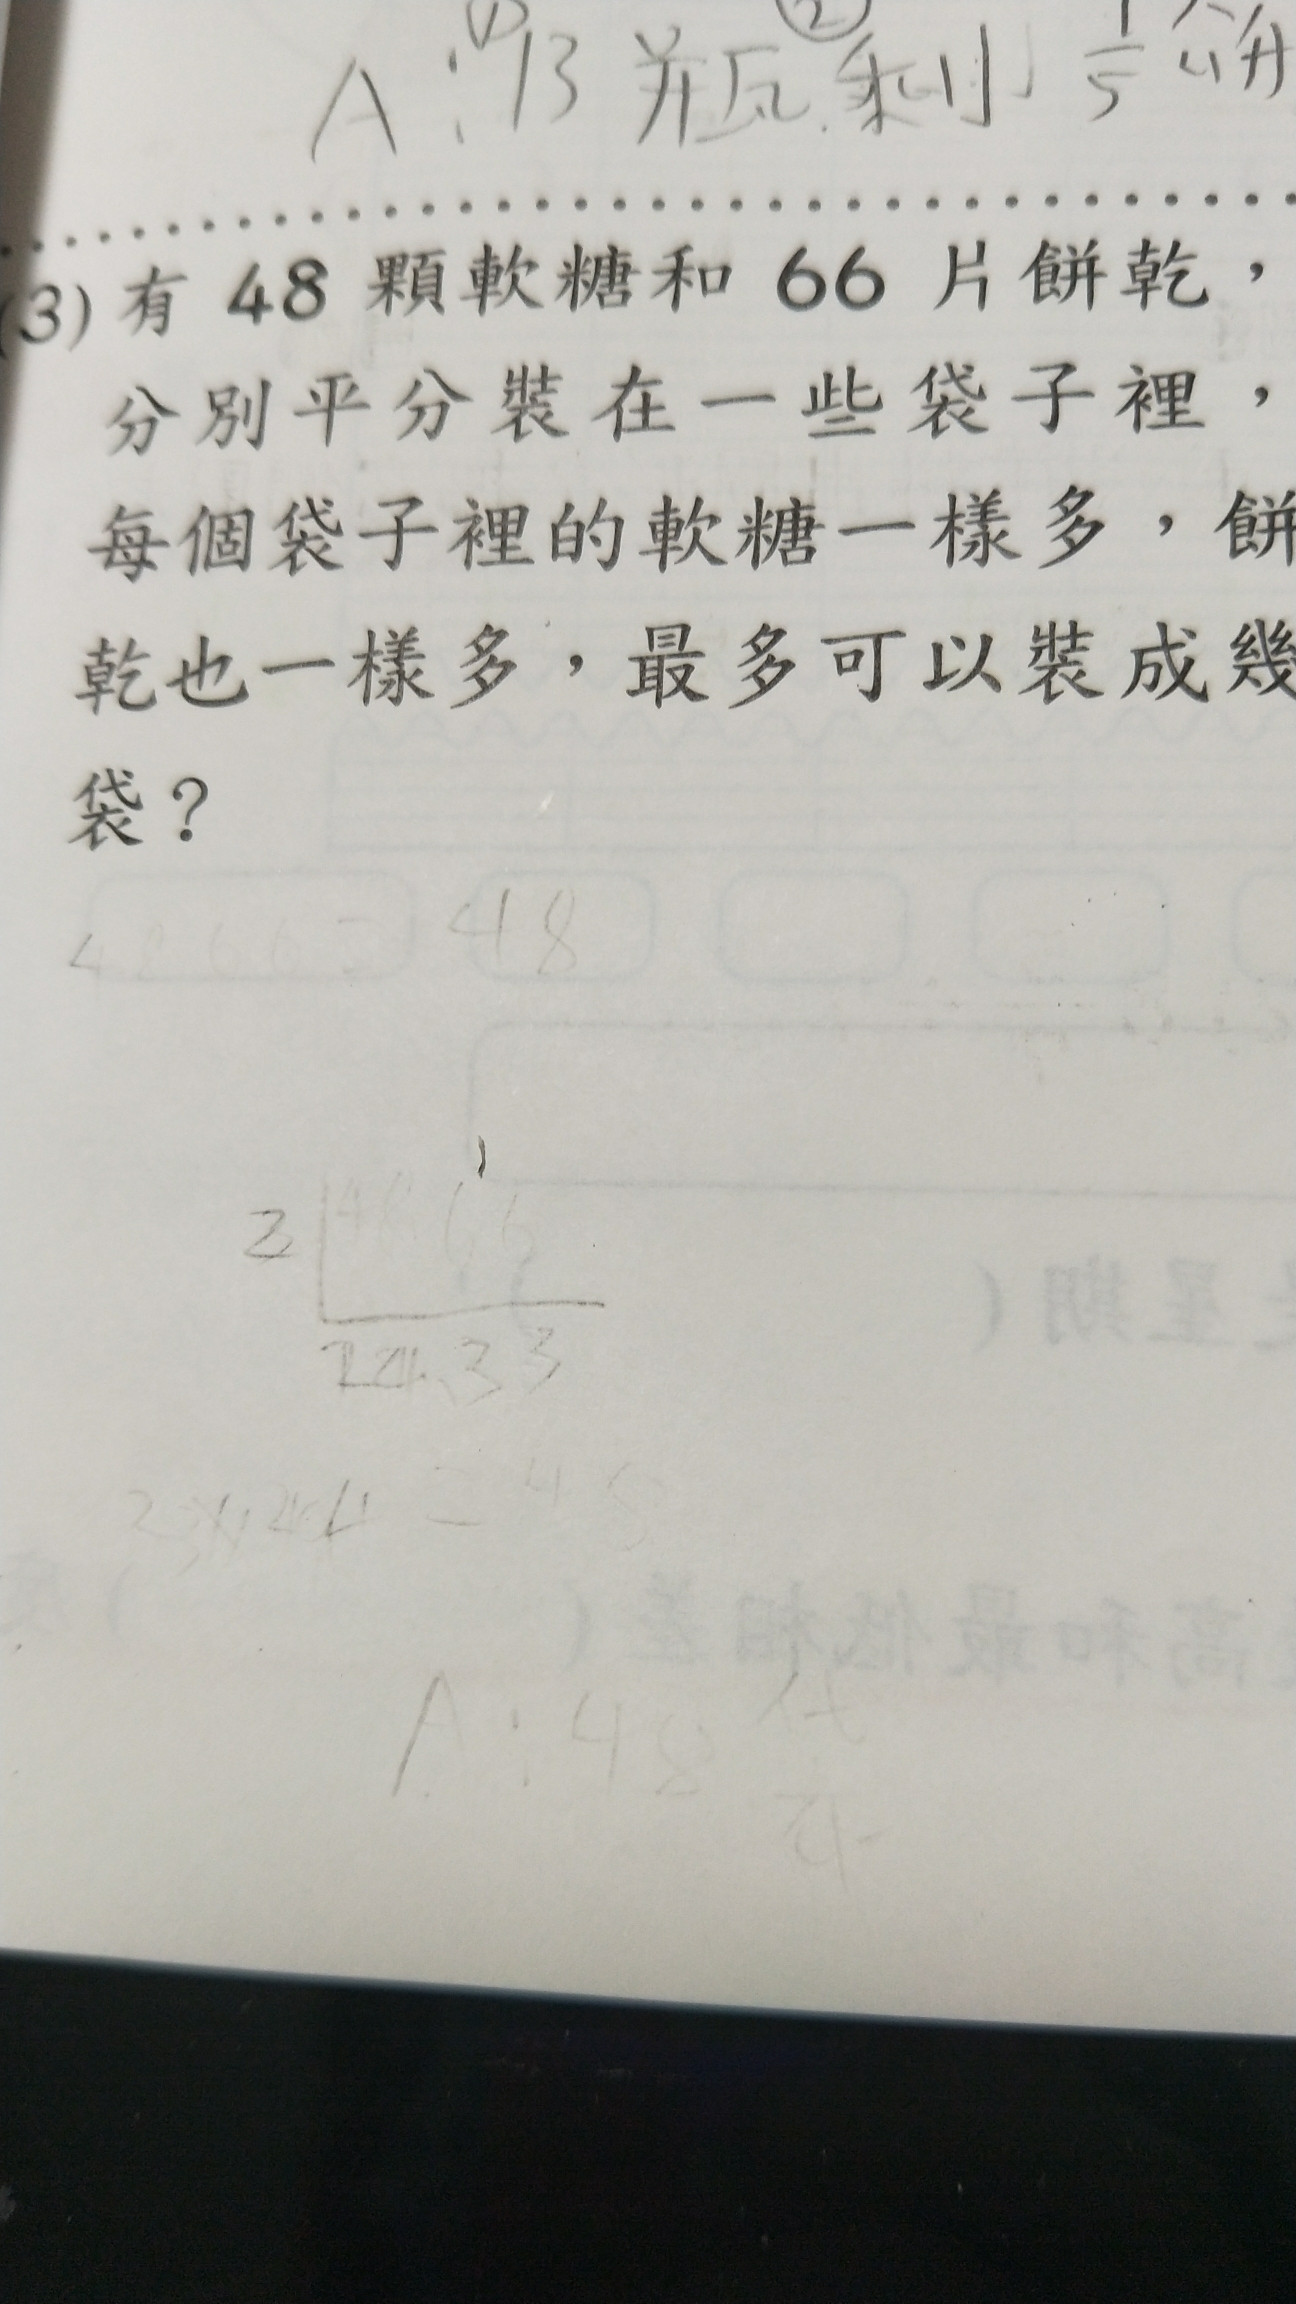 A：①13瓶②剩1/5公升
(3) 有 48 顆軟糖和 66 片餅乾，
分別平分裝在一些袋子裡，
每個袋子裡的軟糖一樣多，餅
乾也一樣多，最多可以裝成幾
袋？
48
2 48 66
24 33
2×24=48
A：48 袋
是星期（
高和最低相差（